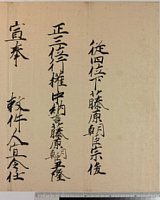 從四位下藤原朝臣宗俊
正三位行權中納言藤原朝臣
宣奉 敕件人宜令任